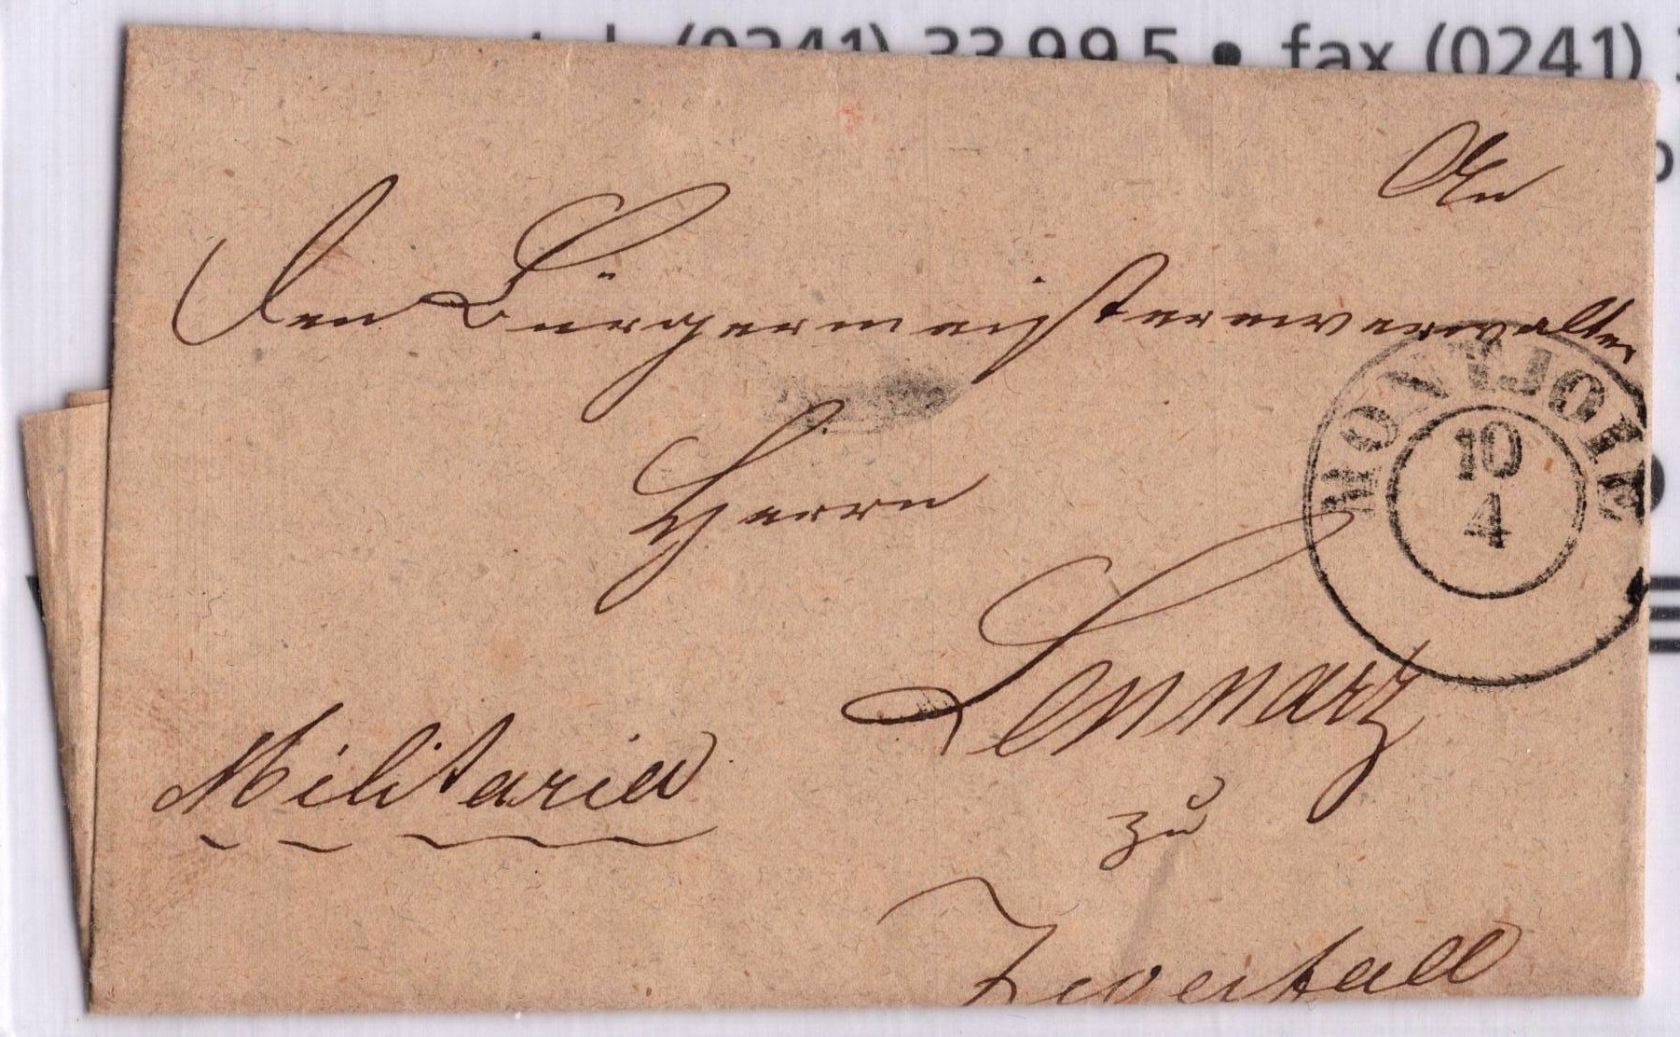 (0241) 33 99 5 • fax (0241)
An
den Bürgermeistereiverwalter
Herrn
Lennarz
zu
Zweifall
Militaria
MONTJOIE
10
4